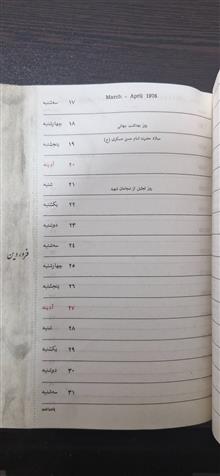 March - April 1976
سه‌شنبه ۱۷
چهارشنبه ۱۸ روز بهداشت جهانی
پنجشنبه ۱۹ میلاد حضرت امام حسن عسکری (ع)
آدینه ۲۰
شنبه ۲۱ روز تجلیل از سربازان شهید
یکشنبه ۲۲
دوشنبه ۲۳
سه‌شنبه ۲۴
چهارشنبه ۲۵
پنجشنبه ۲۶
آدینه ۲۷
شنبه ۲۸
یکشنبه ۲۹
دوشنبه ۳۰
سه‌شنبه ۳۱
فروردین